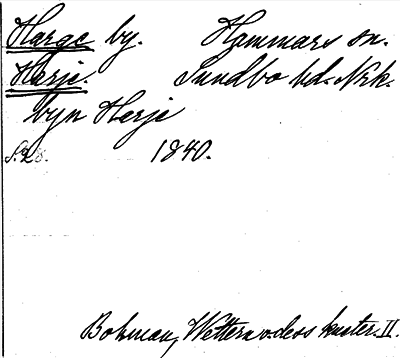 Harge by. Hammars sn.
Herje. Sundbo hd. Nrk.
byn Herje
S. 28. 1840.
Bohman, Wettern o. dess kuster. II.